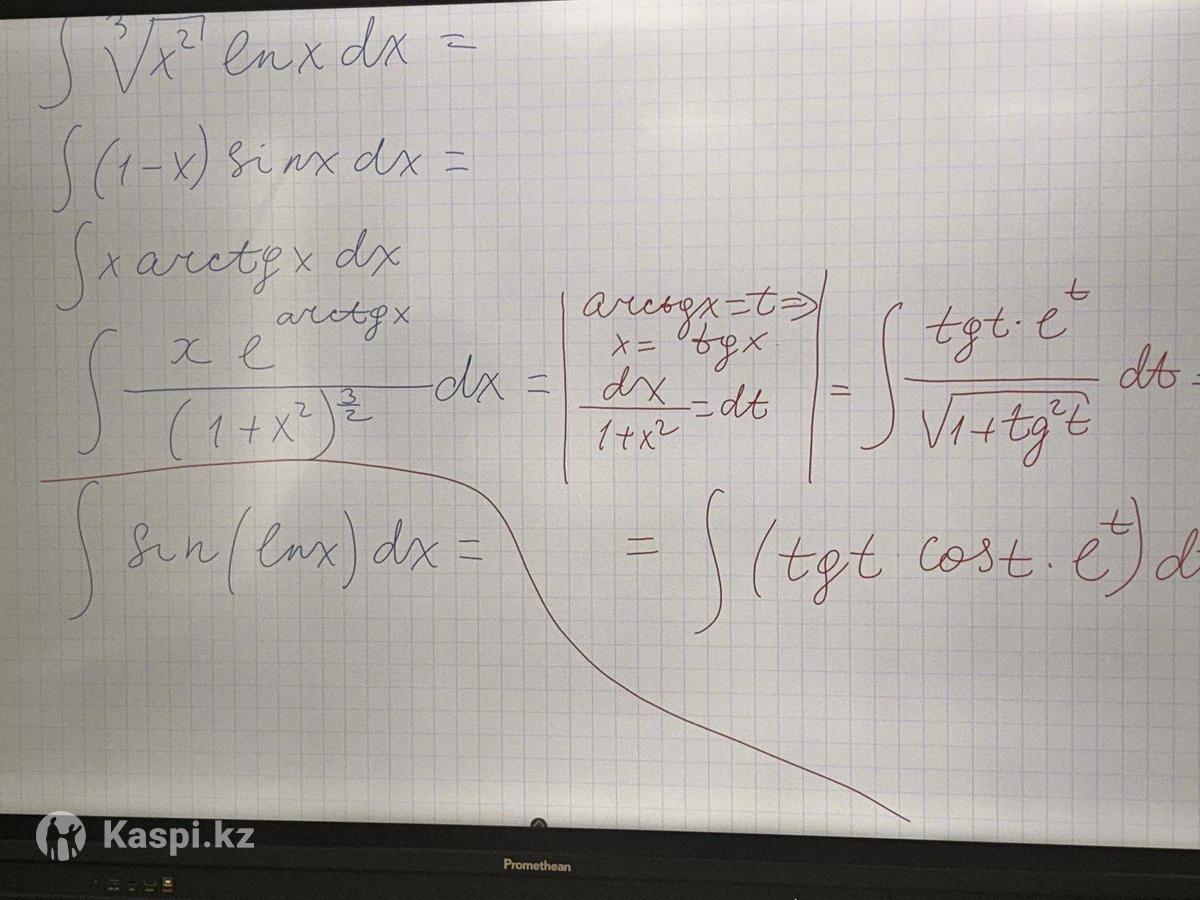 ∫ ∛x² lnx dx =
∫ (1-x) sinx dx =
∫ x arctgx dx
∫ x e^arctgx / (1+x²)^(3/2) dx = | arctgx = t ⇒ x = tgx dx/(1+x²) = dt | = ∫ tgt · e^t / √(1+tg²t) dt =
∫ sin(lnx) dx =
= ∫ (tgt cost · e^t) d
Kaspi.kz
Promethean